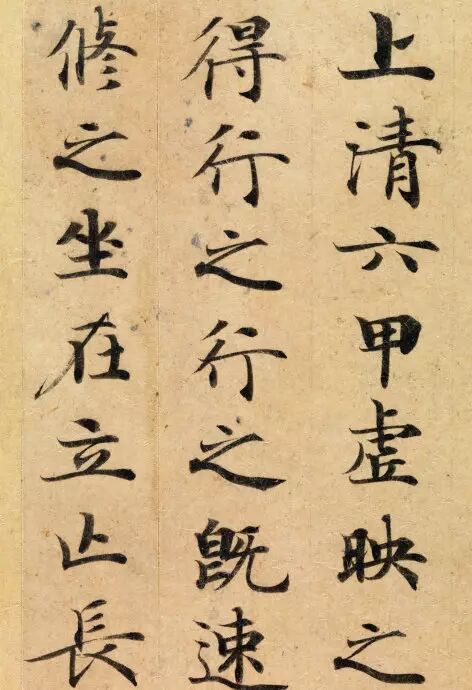 上清六甲虛映之
得行之行之既速
修之坐在立亾長